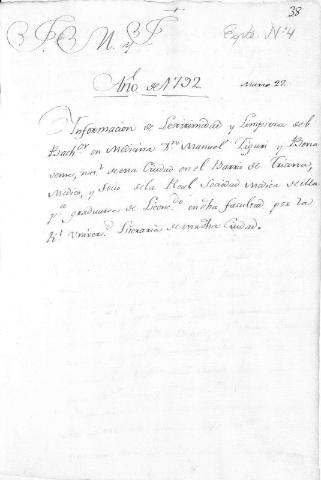 38
Expte. Nº 4
Año de 1792 Marzo 22.
Informacion de Lexitimidad y Limpieza del
Bach.or en Medicina Dn Manuel
nat.l de esta Ciudad en el Barrio de Triana,
Medico, y Socio de la Real Sociedad Medica de ella
pa graduarse de Licenc.do en dha facultad por la
Rl Univer.d Literaria de esta dha Ciudad.